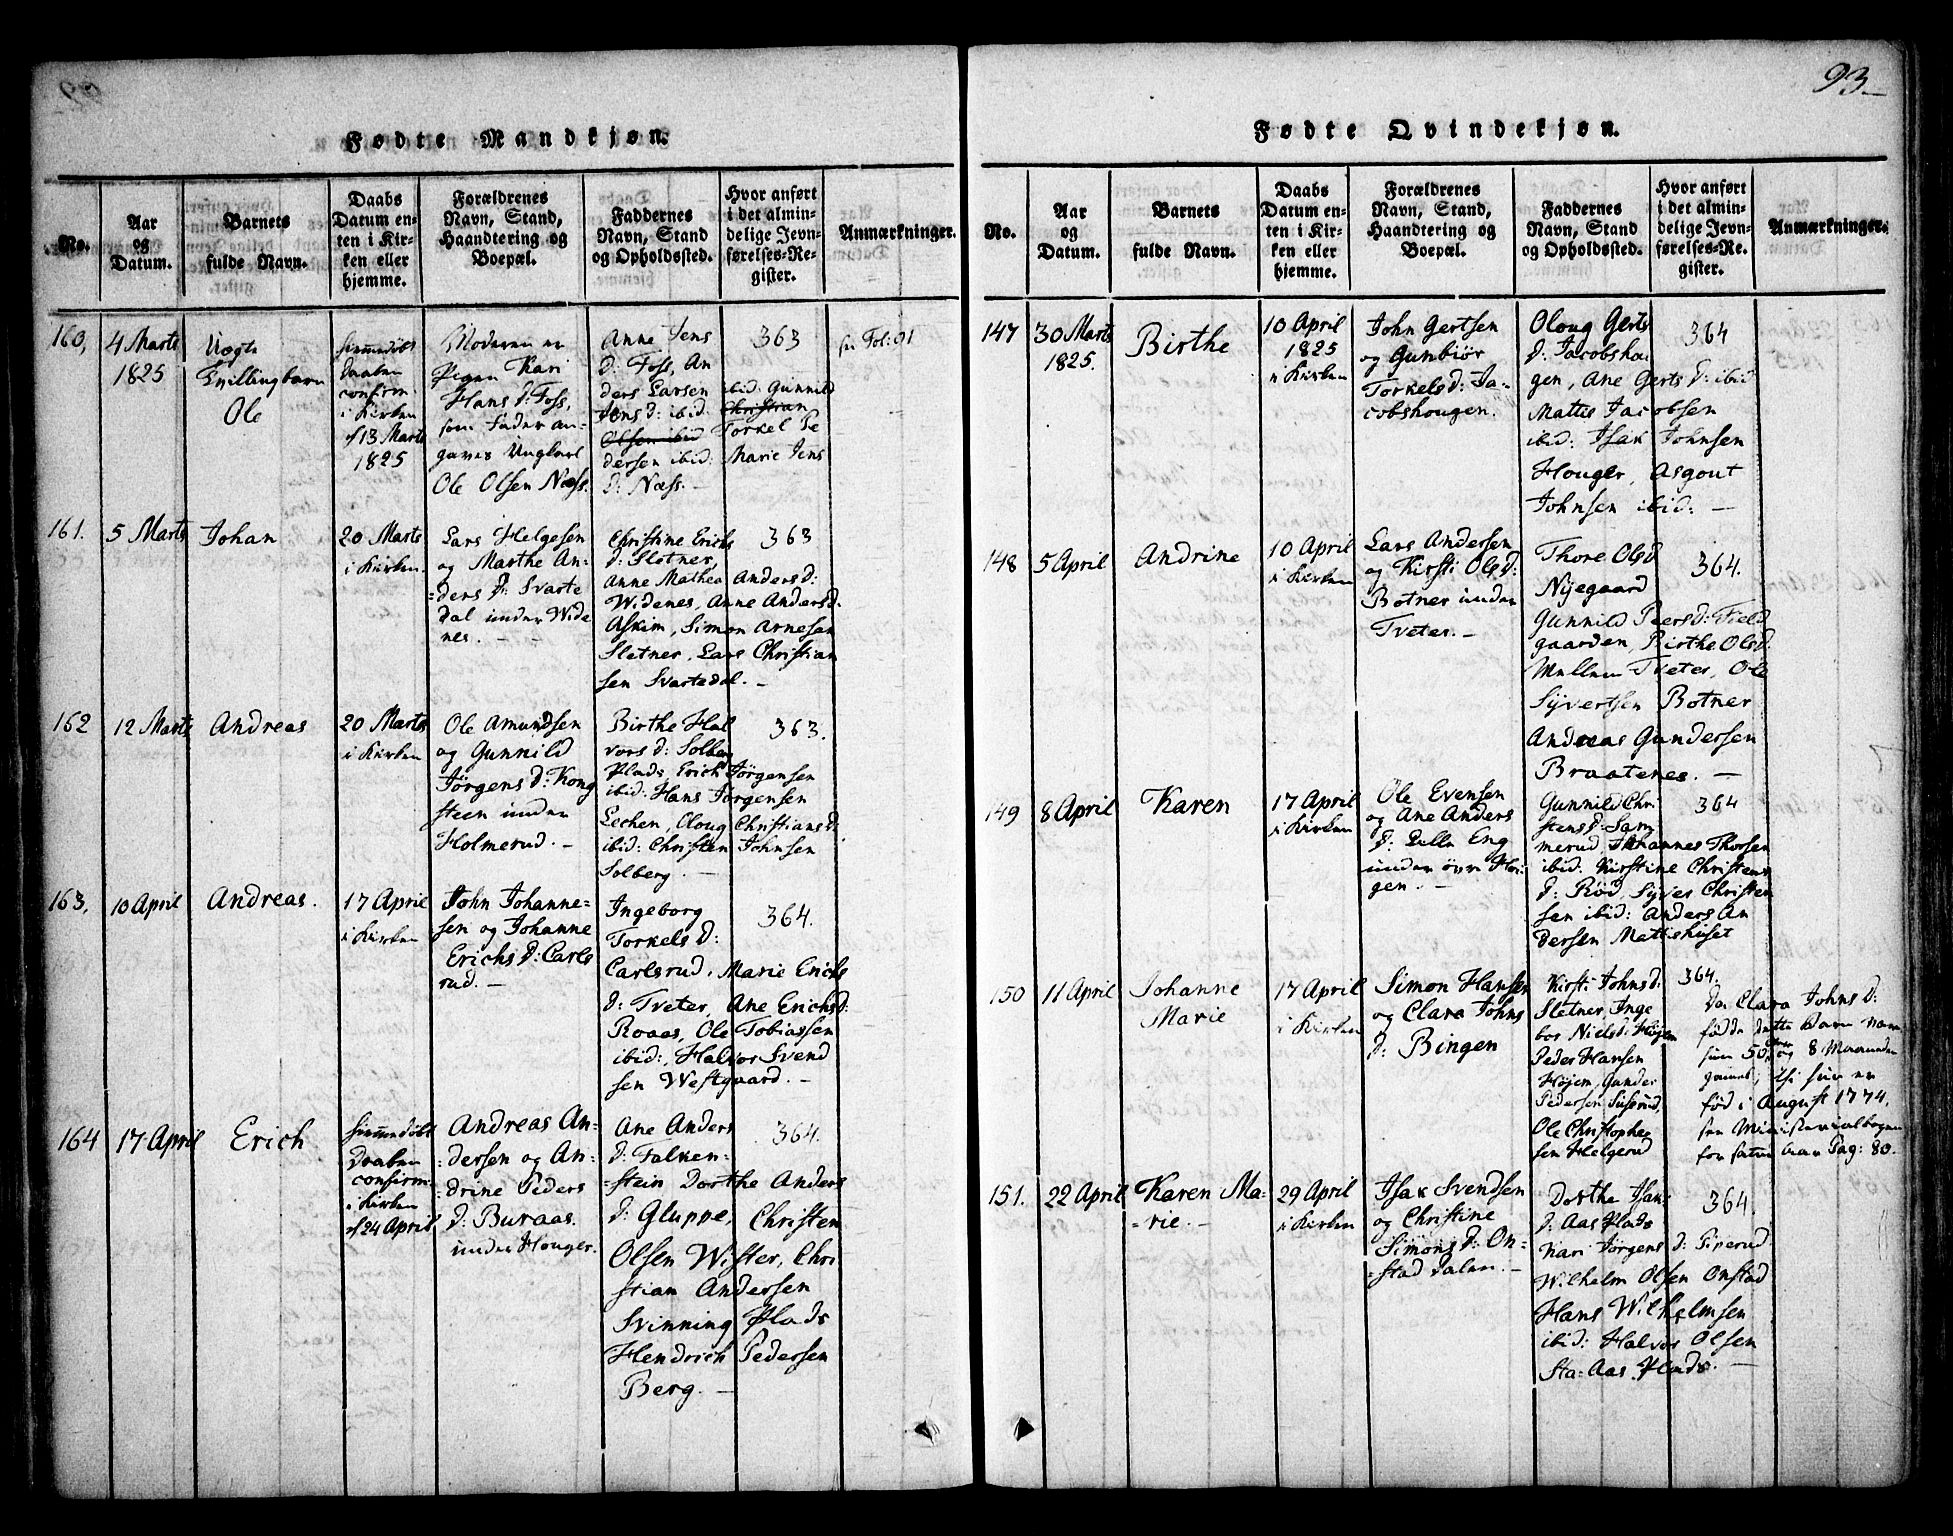 93
Fødte Mandkjøn.
No.
Aar
og
Datum.
Barnets
fulde Navn.
Daabs
Datum en-
ten i Kir-
ken eller
hjemme.
Forældrenes
Navn, Stand,
Haandtering og
Boepæl.
Faddernes
Navn, Stand
og Opholdssted.
Hvor anført
i det almin-
delige Jevn-
førelses-Re-
gister.
Anmærkninger.
160,
4 Marts
1825
Uægte
Tvillingbarn
Ole
hjemmedøbt
Daaben
confirm
i Kirken
d 13 Marts
1825
Moderen er
Pigen Kari
Hans D: Foss,
som Fader an-
gaves Ungkarl
Ole Olsen Næss.
Anne Jens
D: Foss, An
ders Larsen
ibid: Gunnild
Jens D: ibid: Christian
Olsen ibid Torkel Pe
dersen ibid: Marie Jens
D: Næss. —
363
Fol: 91
161.
5 Marts
Johan
20 Marts
i Kirken.
Lars Helgesen
og Marthe An-
ders D: Svarte
dal under Wide
nes. —
Christine Erichs
D: Sletner,
Anne Mathea Anders D:
Widenes, Anne Anders D.
Askim, Simon Arnesen
Sletner, Lars Christian
sen Svartedal. —
363
162
12 Marts
Andreas
20 Marts
i Kirken
Ole Amundsen
og Gunnild
Jørgens D: Kong
steen under
Holmerud. —
Birthe Hal
vors D: Solberg
Plads, Erich Jørgensen
ibid: Hans Jørgensen
Lechen, Oloug Christians D:
ibid: Christen Johnsen
Solberg. —
363.
163,
10 April
Andreas.
17 April
i Kirken
John Johanne-
sen og Johanne
Erichs D: Carls
rud. —
Ingeborg
Torkels D:
Carlsrud, Marie Erichs
D: Tveter, Ane Erichs D:
Roaas, Ole Tobiassen
ibid: Halvor Svend
sen Westgaard. —
364.
164
17 April
Erich
hjemmedøbt
Daaben
confirm:
i Kirken
d 24 April
Andreas An-
dersen og An-
drine Peders
D: Buraas
under Houger.
Ane Anders
D: Falken-
stein Dorthe Anders
D: Gluppe, Christen
Olsen Wister, Chri
stian Andersen
Svinning Plads
Hendrich Pedersen
Berg. —
364.
Fødte Qvindekjøn.
No.
Aar
og
Datum.
Barnets
fulde Navn.
Daabs
Datum en-
ten i Kir-
ken eller
hjemme.
Forældrenes
Navn, Stand,
Haandtering og
Boepæl.
Faddernes
Navn, Stand
og Opholdssted.
Hvor anført
i det almin-
delige Jevn-
førelses-Re-
gister.
Anmærkninger.
147
30 Marts
1825.
Birthe
10 April
1825
i Kirken
John Gertsen
og Gunbiør
Torkels D: Ja-
cobshougen.
Oloug Gerts
D: Jacobshou
gen, Ane Gerts D: ibid
Mattis Jacobsen
ibid: Isak Johnsen
Houger, Asgout
Johnsen ibid: —
364
148
5 April
Andrine
10 April
i Kirken
Lars Andersen
og Kirsti Ols D:
Botner under
Tveter. —
Thore Ols D
Nyegaard
Gunnild Peers D: Field
gaarden, Birthe Ols D.
Mellem Tveter, Ole
Syvertsen Botner
Andreas Gundersen
Braatenes. —
364.
149
8 April
Karen
17 April
i Kirken
Ole Evensen
og Ane Anders
D: Lille Eng
under øvre Hoi-
gen. —
Gunnild Chri
stens D: Sam
merud, Johannes Thorsen
ibid: Kirstine Christens
D: Rød, Syver Christen
sen ibid: Anders An
dersen Mattishuset
364
150
11 April
Johanne
Marie
17 April
i Kirken
Simon Hansen
og Clara Johns
D: Bingen
Kirsti Johns D:
Sletner, Inge
bor Niels D: Højen
Peder Hansen
Højem, Gunder
Pedersen Susrud,
Ole Christophe
sen Helgerud
364.
Da Clara Johns D:
fødde dette Barn var
hun 50 Aar og 8 Maaneder
gammel, thi hun er
fød i August 1774.
see Ministerialbogen
for samme Aar Pag: 80.
151.
22 April
Karen Ma-
rie. —
29 April
i Kirken
Isak Svendsen
og Christine
Simons D: On-
stad dalen. —
Dorthe Isak
D: Aas Plads
Kari Jørgens D: Piperud
Wilhelm Olsen Onstad
Hans Wilhelmsen
ibid: Halvor Olsen
Sta: Aas Plads. —
364.